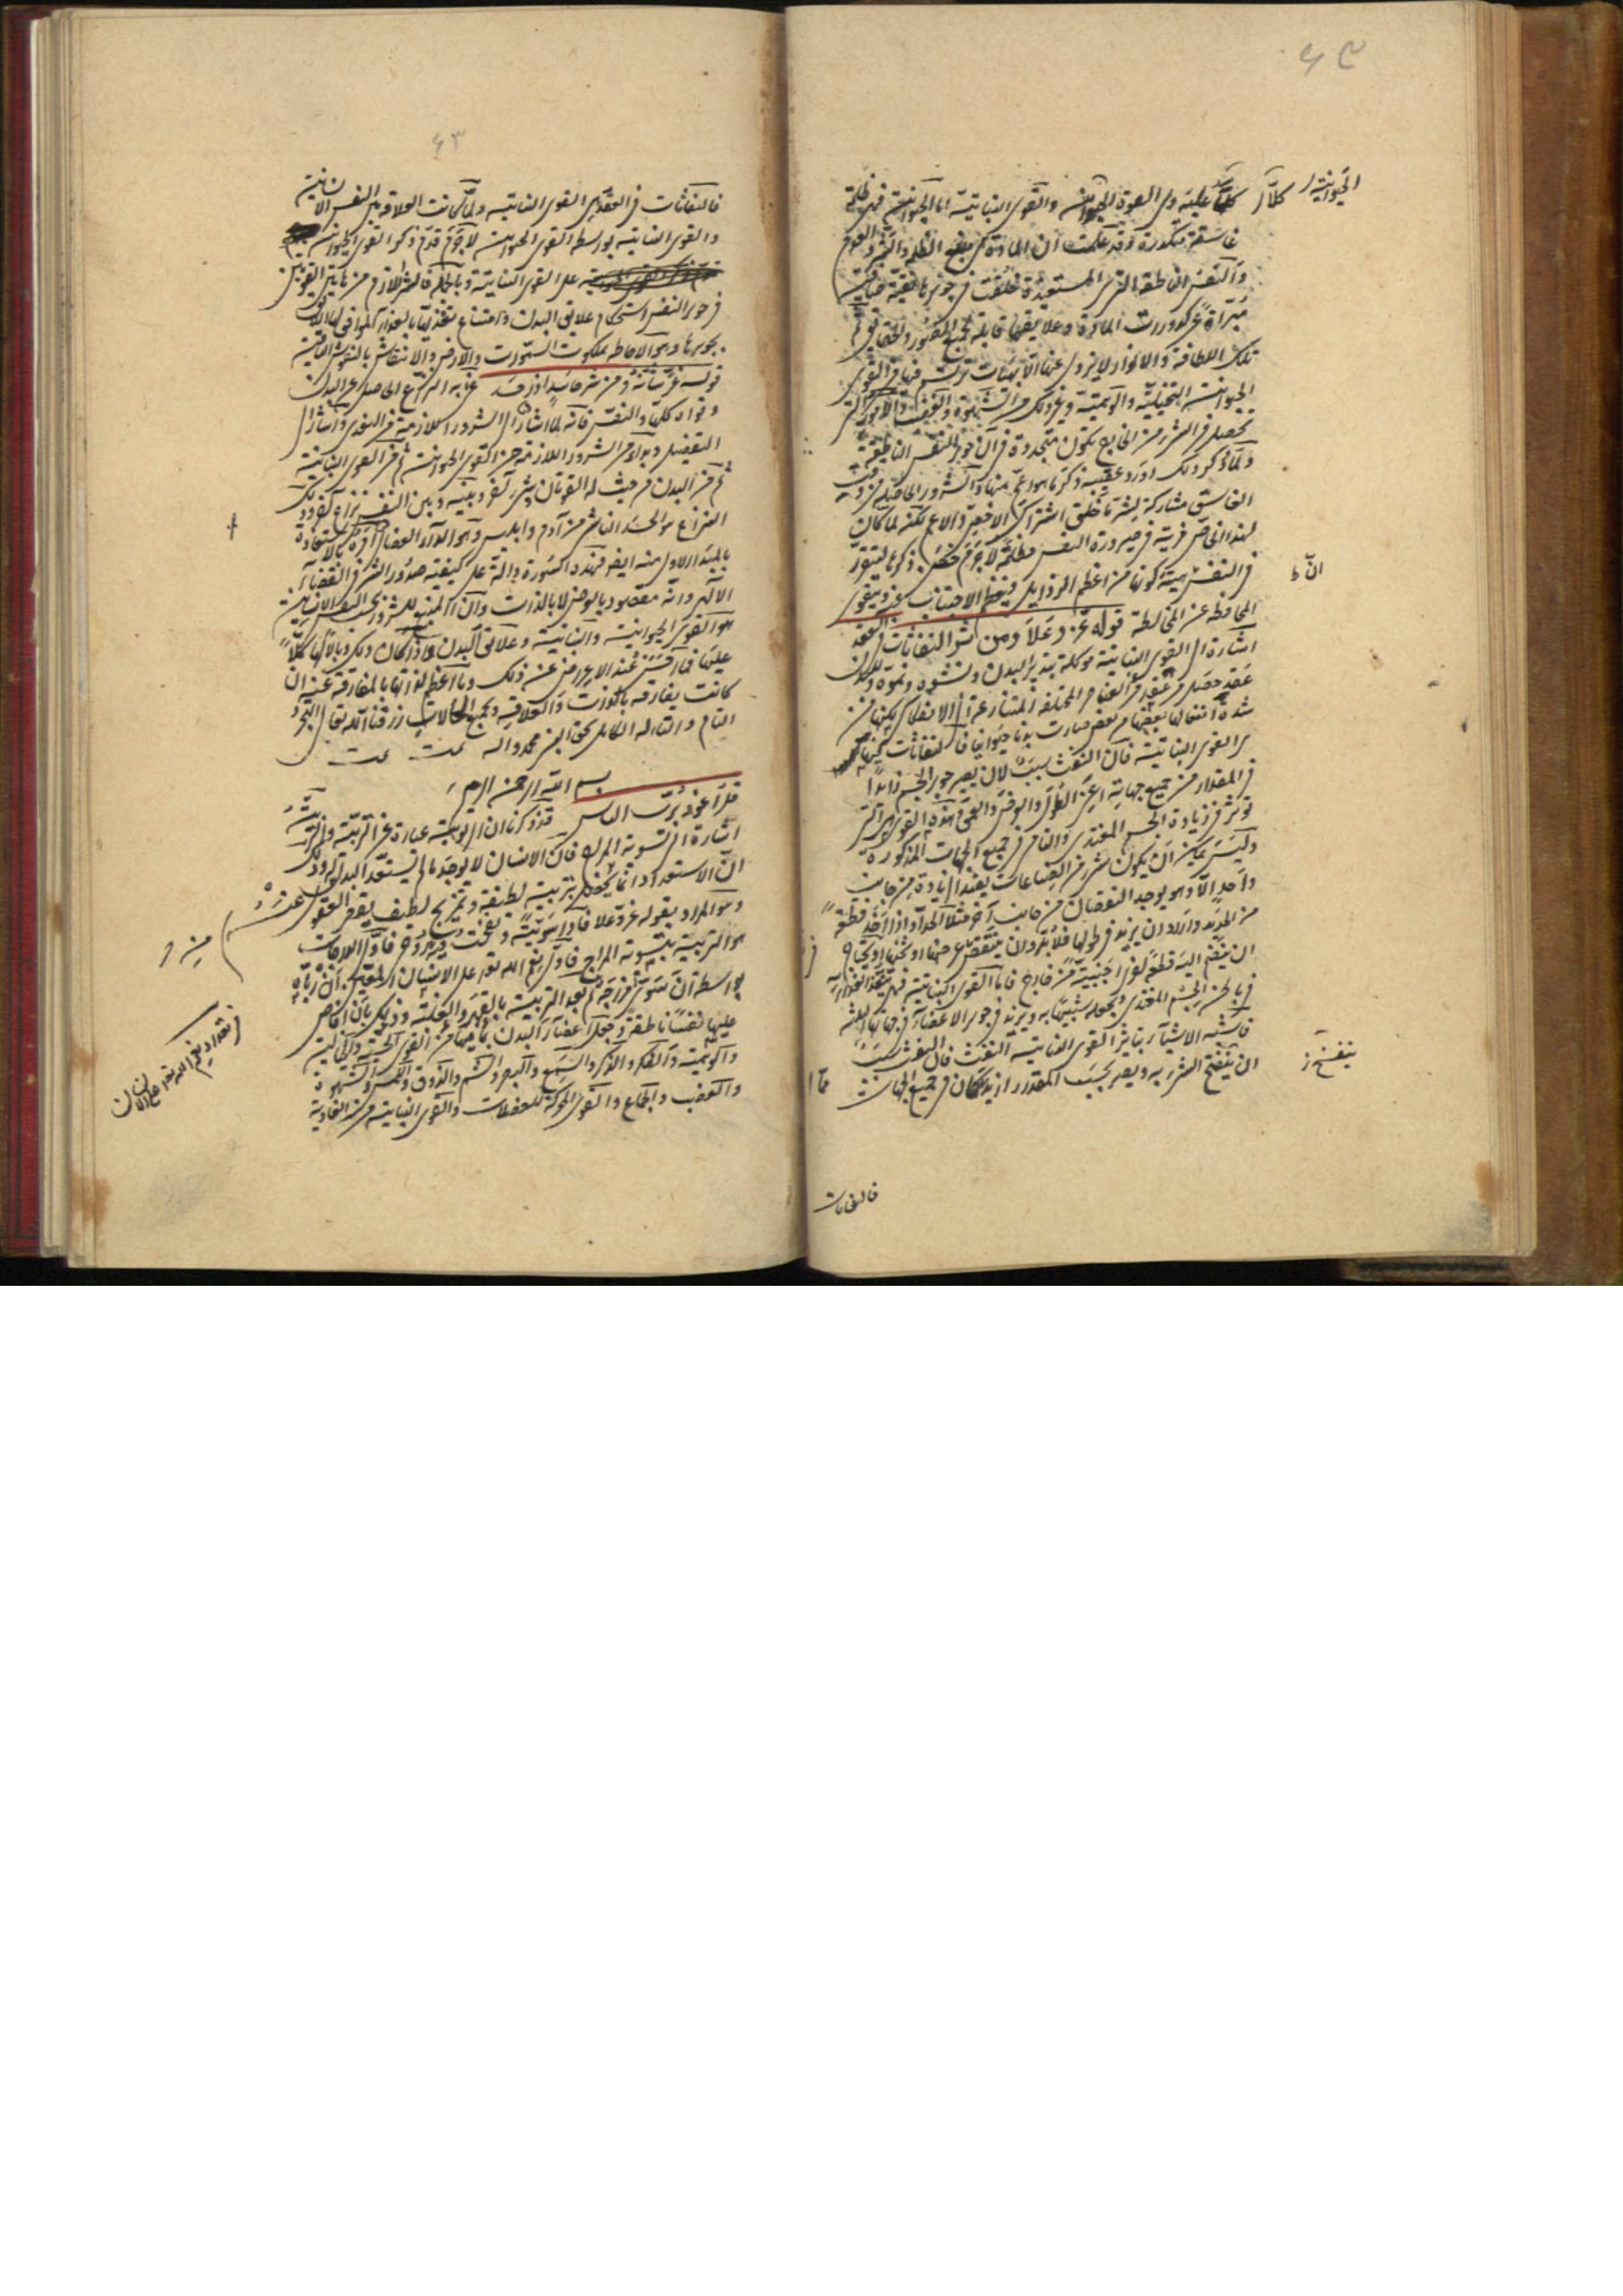 ٤٣
الحيوانية
كلّا
عليه وهى القوة الحيوانية والقوى النباتية اما الحيوانية فهى ظلمة
غاسقة متكدرة وقد علمت ان المادة هى منبع الظلمة والشر والعدم
والنفس الناطقة التى هى المستعيذة خلقت فى جوهرها نقية صافية
مبرّاة عن كدورات المادة وعلايقها قابلة لجميع الصور والحقايق ثم
تلك اللطافة والانوار لا يزول عنها الا بهيئات ترتسم فيها من القوى
الحيوانية التخيلية والوهمية وغير ذلك من الشهوة والغضب والامور التى
تحصل فى الشىء من الخارج يكون متجددة فاذن جوهر النفس الناطقة
ولما ذكر ذلك اورد عقيبه ذكر ما هو اعم منها والشرور الحاصلة من وقب
الغاسق مشاركة لشر ما خلق اشتراك الاخص والاعم لكنه لما كان
لهذا الخاص مزية فى صيرورة النفس مظلمة لا جرم خصّ بذكره لتتقرر
ان ط
فى النفس هيئة كونها من اعظم الرذايل فيعظم الاجتناب عنه ويتقوى
المحافظة عن المخالطة قوله عز وعلا ومن شر النفاثات فى العقد
اشارة الى القوى النباتية موكلة بتدبير البدن ونشوه ونموه والبدن
عقد حصل من عقد من العناصر المختلفة المتنازعة الى الانفكاك لكنها من
شدة انفعال بعضها عن بعض صارت بدنا حيوانيا فالنفاثات فيها
هى القوى النباتية فان النفث سبب لان يصير جوهر الجسم زايدا
فى المقدار من جميع جهاته اى عن الطول والعرض والعمق وهذه القوى هى التى
توثر فى زيادة الجسم المغتذى والنامى فى جميع الجهات المذكورة
وليس يمكن ان يكون شىء من الصناعات يفيد الزيادة من جانب
واحد الا وهو يوجد النقصان من جانب آخر مثلا الحداد اذا اخذ قطعة
من الحديد واراد ان يزيد فى طولها فلا بد وان ينقص عرضها او ثخنها او يحتاج
الى ان يضم اليه قطعة اخرى اجنبية من خارج فاما القوى النباتية فهى تنفذ الغذاء
فى باطن الجسم المغتذى وتجعله شبيها به ويزيد فى جوهر الاعضاء فى جهاتها الثلثة
فاشبه الاشياء بتاثير القوى النباتية النفث فان النفث سبب
ينتفخ ز
الى ان ينتفخ الشىء به ويصير بحسب المقدار ازيد مما كان فى جميع الجهات
فالنفاثات
٤٣
فالنفاثات فى العقد هى القوى النباتية ولما كانت العلاقة بين النفس الانسانية
والقوى النباتية بواسطة القوى الحيوانية لا جرم قدم ذكر القوى الحيوانية
على القوى النباتية وبالجملة فالشر اللازم من هاتين القوتين
فى جوهر النفس استحكام علايق البدن وامتناع تغذيها بالغذاء الموافق لها اللايق
بجوهرها وهو الاحاطة بملكوت السموات والارض والانتقاش بالنقوش الباقية
قوله عز شانه ومن شر حاسد اذا حسد عنى به النزاع الحاصل بين البدن
وقواه كلها والنفس فانه لما اشار الى الشرور اللازمة من القوى واشار الى
التفصيل وبدأ من الشرور اللازمة من القوى الحيوانية ثم من القوى النباتية
ثم من البدن من حيث له القوتان وشىء آخر وبينه وبين النفس نزاع آخر وذلك
النزاع هو الحسد الناشى من آدم وابليس وهو الداء العضال امره بالاستعاذة
بالمبدا الاول منه ايضا فهذه السورة دالة على كيفية صدور الشر فى القضاء
الالهى وانه مقصود بالعرض لا بالذات وان المنبع للشرور بحسب النفس الانسانية
هو القوى الحيوانية والنباتية وعلايق البدن واذا كان ذلك وبالا لها كلّا
عليها فما احسن عند الاعراض عنه ذلك وما اعظم لذاتها بالمفارقة عنه ان
كانت يفارقه بالذات والعلاقة وبجميع الحالات رزقنا الله تعالى التجرد
التام والتاله الكامل بحق النبى محمد واله تمت تمت
بسم الله الرحمن الرحيم
قل اعوذ برب الناس قد ذكرنا ان الربوبية عبارة عن التربية والتربية
اشارة الى تسوية المزاج فان الانسان لا يوجد ما لم يستعد البدن له وذلك
ان الاستعداد انما يحصل بتربية لطيفة وتمزيج لطيف يقصر العقول عنه
وهو المراد بقوله عز وعلا فاذا سويته ونفخت فيه من روحى فاول الدرجات
هو التربية بتسوية المزاج فاول نعم الله تعالى على الانسان المعين ان ربّاه
بواسطة ان سوى مزاجه ثم بعد التربية بالقهر والغلبة وذلك بان افاض
عليها نفسا ناطقة وجعل اعضاء البدن بما فيها من القوى الحسية والخيالية
والوهمية والفكر والذكر والسمع والبصر والشم والذوق واللمس والشهوة
والغضب والجماع والقوى المحركة للعضلات والقوى النباتية من الغاذية
فى تعداد نعم الله تعالى على الانسان